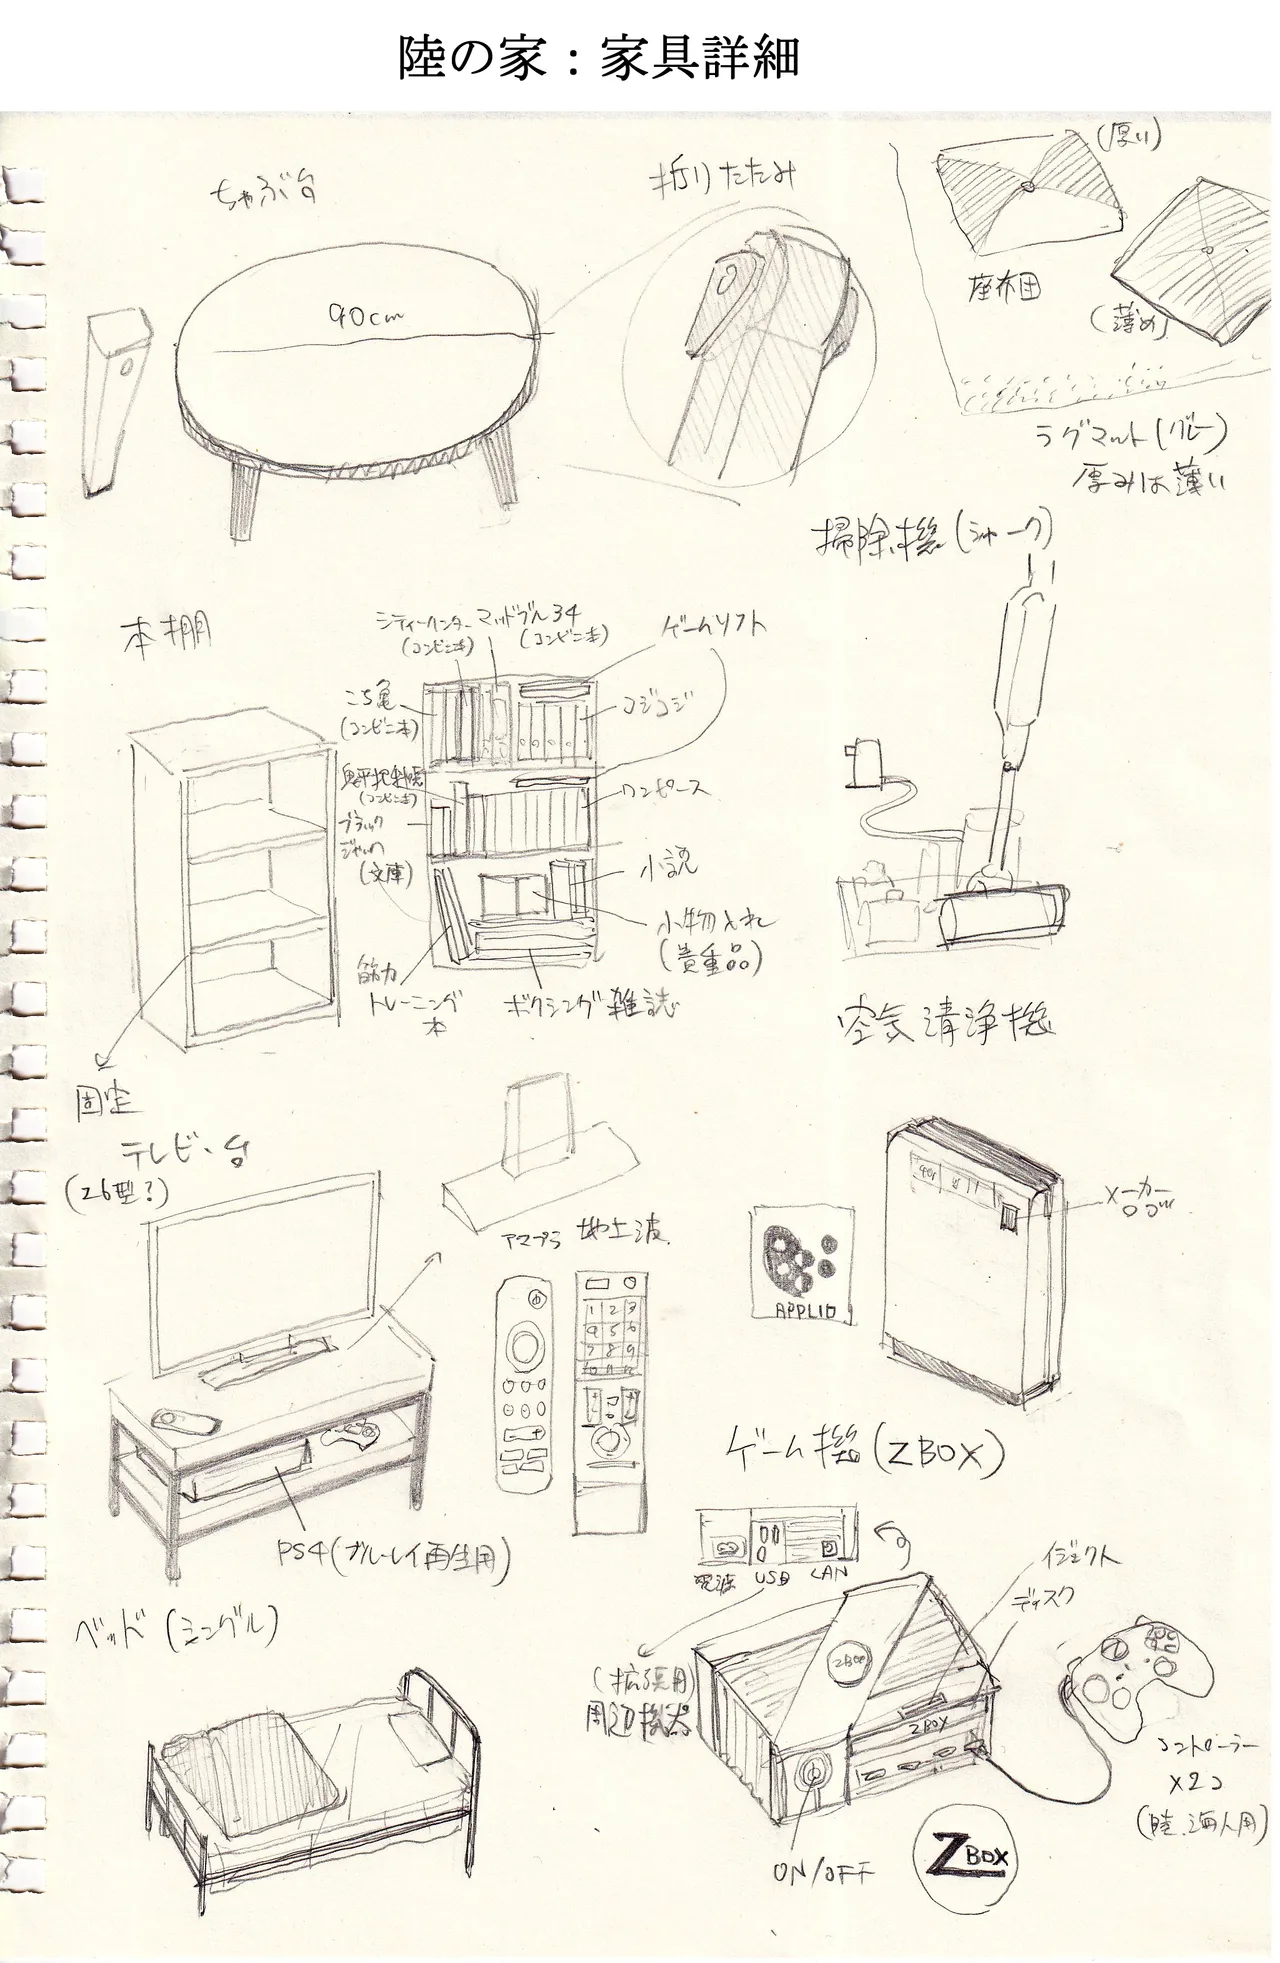 陸の家：家具詳細
ちゃぶ台
90cm
折りたたみ
(厚い)
座布団
(薄め)
ラグマット(グレー)
厚みは薄い
掃除機(シャーク)
本棚
固定
シティーハンター
(コンビニ本)
マッドブル34
(コンビニ本)
ゲームソフト
こち亀
(コンビニ本)
コジコジ
鬼平犯科帳
(コンビニ本)
ワンピース
ブラック
ジャック
(文庫)
小説
小物入れ
(貴重品)
筋力
トレーニング
本
ボクシング雑誌
空気清浄機
メーカー
ロゴ
APPLIO
テレビ・台
(26型?)
アマプラ
地上波
1 2 3
PS4(ブルーレイ再生用)
ゲーム機(ZBOX)
電源
USB
LAN
イジェクト
ディスク
(拡張用)
周辺機器
ZBOX
ZBOX
コントローラー
×2コ
(陸、海人用)
ON/OFF
ZBOX
ベッド(シングル)